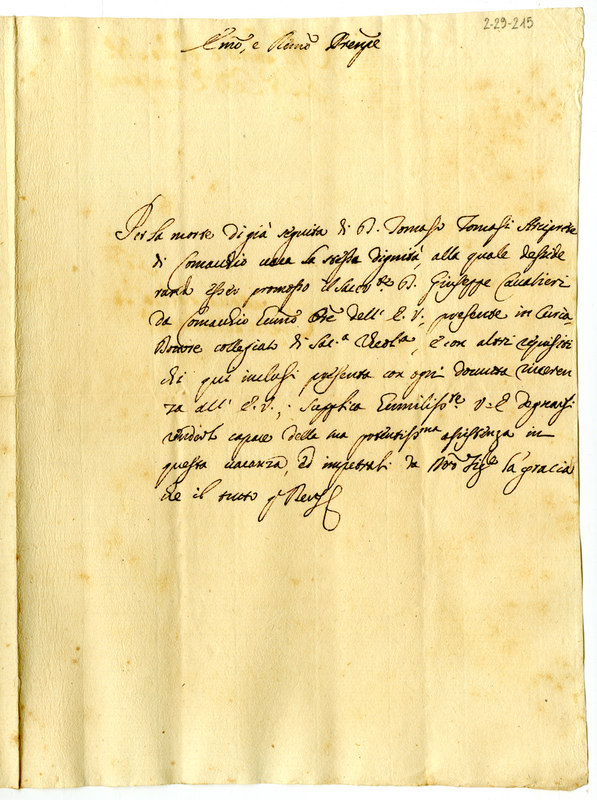 2-29-215
Emo, e Rmo Prencipe
Per la morte di già seguita di D. Tomaso Tomasi Arciprete
di Comacchio vaca la stessa dignità, alla quale deside
rando esser promosso il Sacerte D. Giuseppe Cavalieri
da Comacchio dell' E. V., presente in Curia,
Dottore collegiato di Sac.a Theol.a, e con altri requisiti
che qui inclusi presenta con ogni dovuta riveren
za all' E. V., Supplica Eumiliss.te V. E. degnarsi
renderlo capace della sua potentiss.ma assistenza in
questa vacanza, ed impetrarli da la gracia
che il tutto